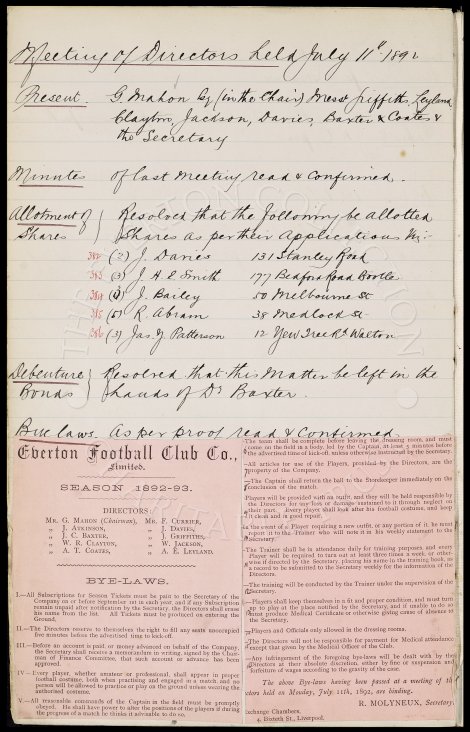 Meeting of Directors held July 11th 1892
Present. G. Mahon Esq (in the Chair) Messrs Griffiths, Leyland
Clayton, Jackson, Davies, Baxter & Coates &
the Secretary
Minutes of last Meeting read & Confirmed.
Allotment of Resolved that the following be allotted
Shares Shares as per their Applications Viz-
382 (2) J. Davies 131 Stanley Road
383 (3) J. H. E. Smith 177 Bedford Road Bootle
384 J. Bailey 50 Melbourne St
385 (5) R. Abram 38 Medlock St
386 (3) Jas Y. Patterson 12 Yew Tree Rd Walton
Debenture Resolved that this Matter be left in the
Bonds hands of Dr Baxter.
Bye laws. As per proof read & Confirmed.
Everton Football Club Co.,
Limited.
SEASON 1892-93.
DIRECTORS:
MR. G. MAHON (Chairman), MR. F. CURRIER,
„ J. ATKINSON, „ J. DAVIES,
„ J. C. BAXTER, „ J. GRIFFITHS,
„ W. R. CLAYTON, „ W. JACKSON,
„ A. T. COATES, „ A. E. LEYLAND.
BYE-LAWS.
I.—All Subscriptions for Season Tickets must be paid to the Secretary of
the Company on or before 1st August in each year, and if any Subscriptions
remain unpaid after notification by the Secretary, the Directors shall erase
his name from the list. All Tickets must be produced on entering the
Ground.
II.—The Directors reserve to themselves the right to fill any seats unoccupied
five minutes before the advertised time to kick-off.
III.—Before an account is paid, or money advanced on behalf of the Company,
the Secretary shall receive a memorandum in writing, signed by the Chair-
man of Finance Committee, that such account or advance has been
approved.
IV.—Every player, whether amateur or professional, shall appear in proper
football costume, both when practising and engaged in a match and no
person will be allowed to practice or play on the ground unless wearing the
authorised costume.
V.—All reasonable commands of the Captain in the field must be promptly
obeyed. He shall have power to alter the positions of the players if during
the progress of a match he thinks it advisable to do so.
The team shall be complete before leaving the dressing room, and must
come on the field in a body, led by the Captain, at least 5 minutes before
the advertised time of kick-off, unless otherwise instructed by the Secretary.
All articles for use of the Players, provided by the Directors, are the
property of the Company.
The Captain shall return the ball to the Storekeeper immediately on the
conclusion of the match.
Players will be provided with an outfit, and they will be held responsible by
the Directors for any loss or damage sustained to it through neglect on
their part. Every players shall look after his football costume, and keep
it clean and in good repair.
the event of a Player requiring a new outfit, or any portion of it, he must
report it to the Trainer who will note it in his weekly statement to the
Secretary.
The Trainer shall be in attendance daily for training purposes, and every
Player will be required to turn out at least three times a week, or other-
wise if directed by the Secretary, placing his name in the training book, as
a record to be submitted to the Secretary weekly for the information of the
Directors.
The training will be conducted by the Trainer under the supervision of the
Secretary.
Players shall keep themselves in a fit and proper condition, and must turn
up to play at the place notified by the Secretary, and if unable to do so
must produce Medical Certificate or otherwise giving cause of absence to
the Secretary.
Players and Officials only allowed in the dressing rooms.
The Directors will not be responsible for payment for Medical attendance
except that given by the Medical Officer of the Club.
Any infringement of the foregoing bye-laws will be dealt with by the
Directors at their absolute discretion, either by fine or suspension and
forfeiture of wages according to the gravity of the case.
The above Bye-laws having been passed at a meeting of the
ctors held on Monday, July 11th, 1892, are binding.
R. MOLYNEUX, Secretary.
Exchange Chambers,
4, Bixteth St., Liverpool.